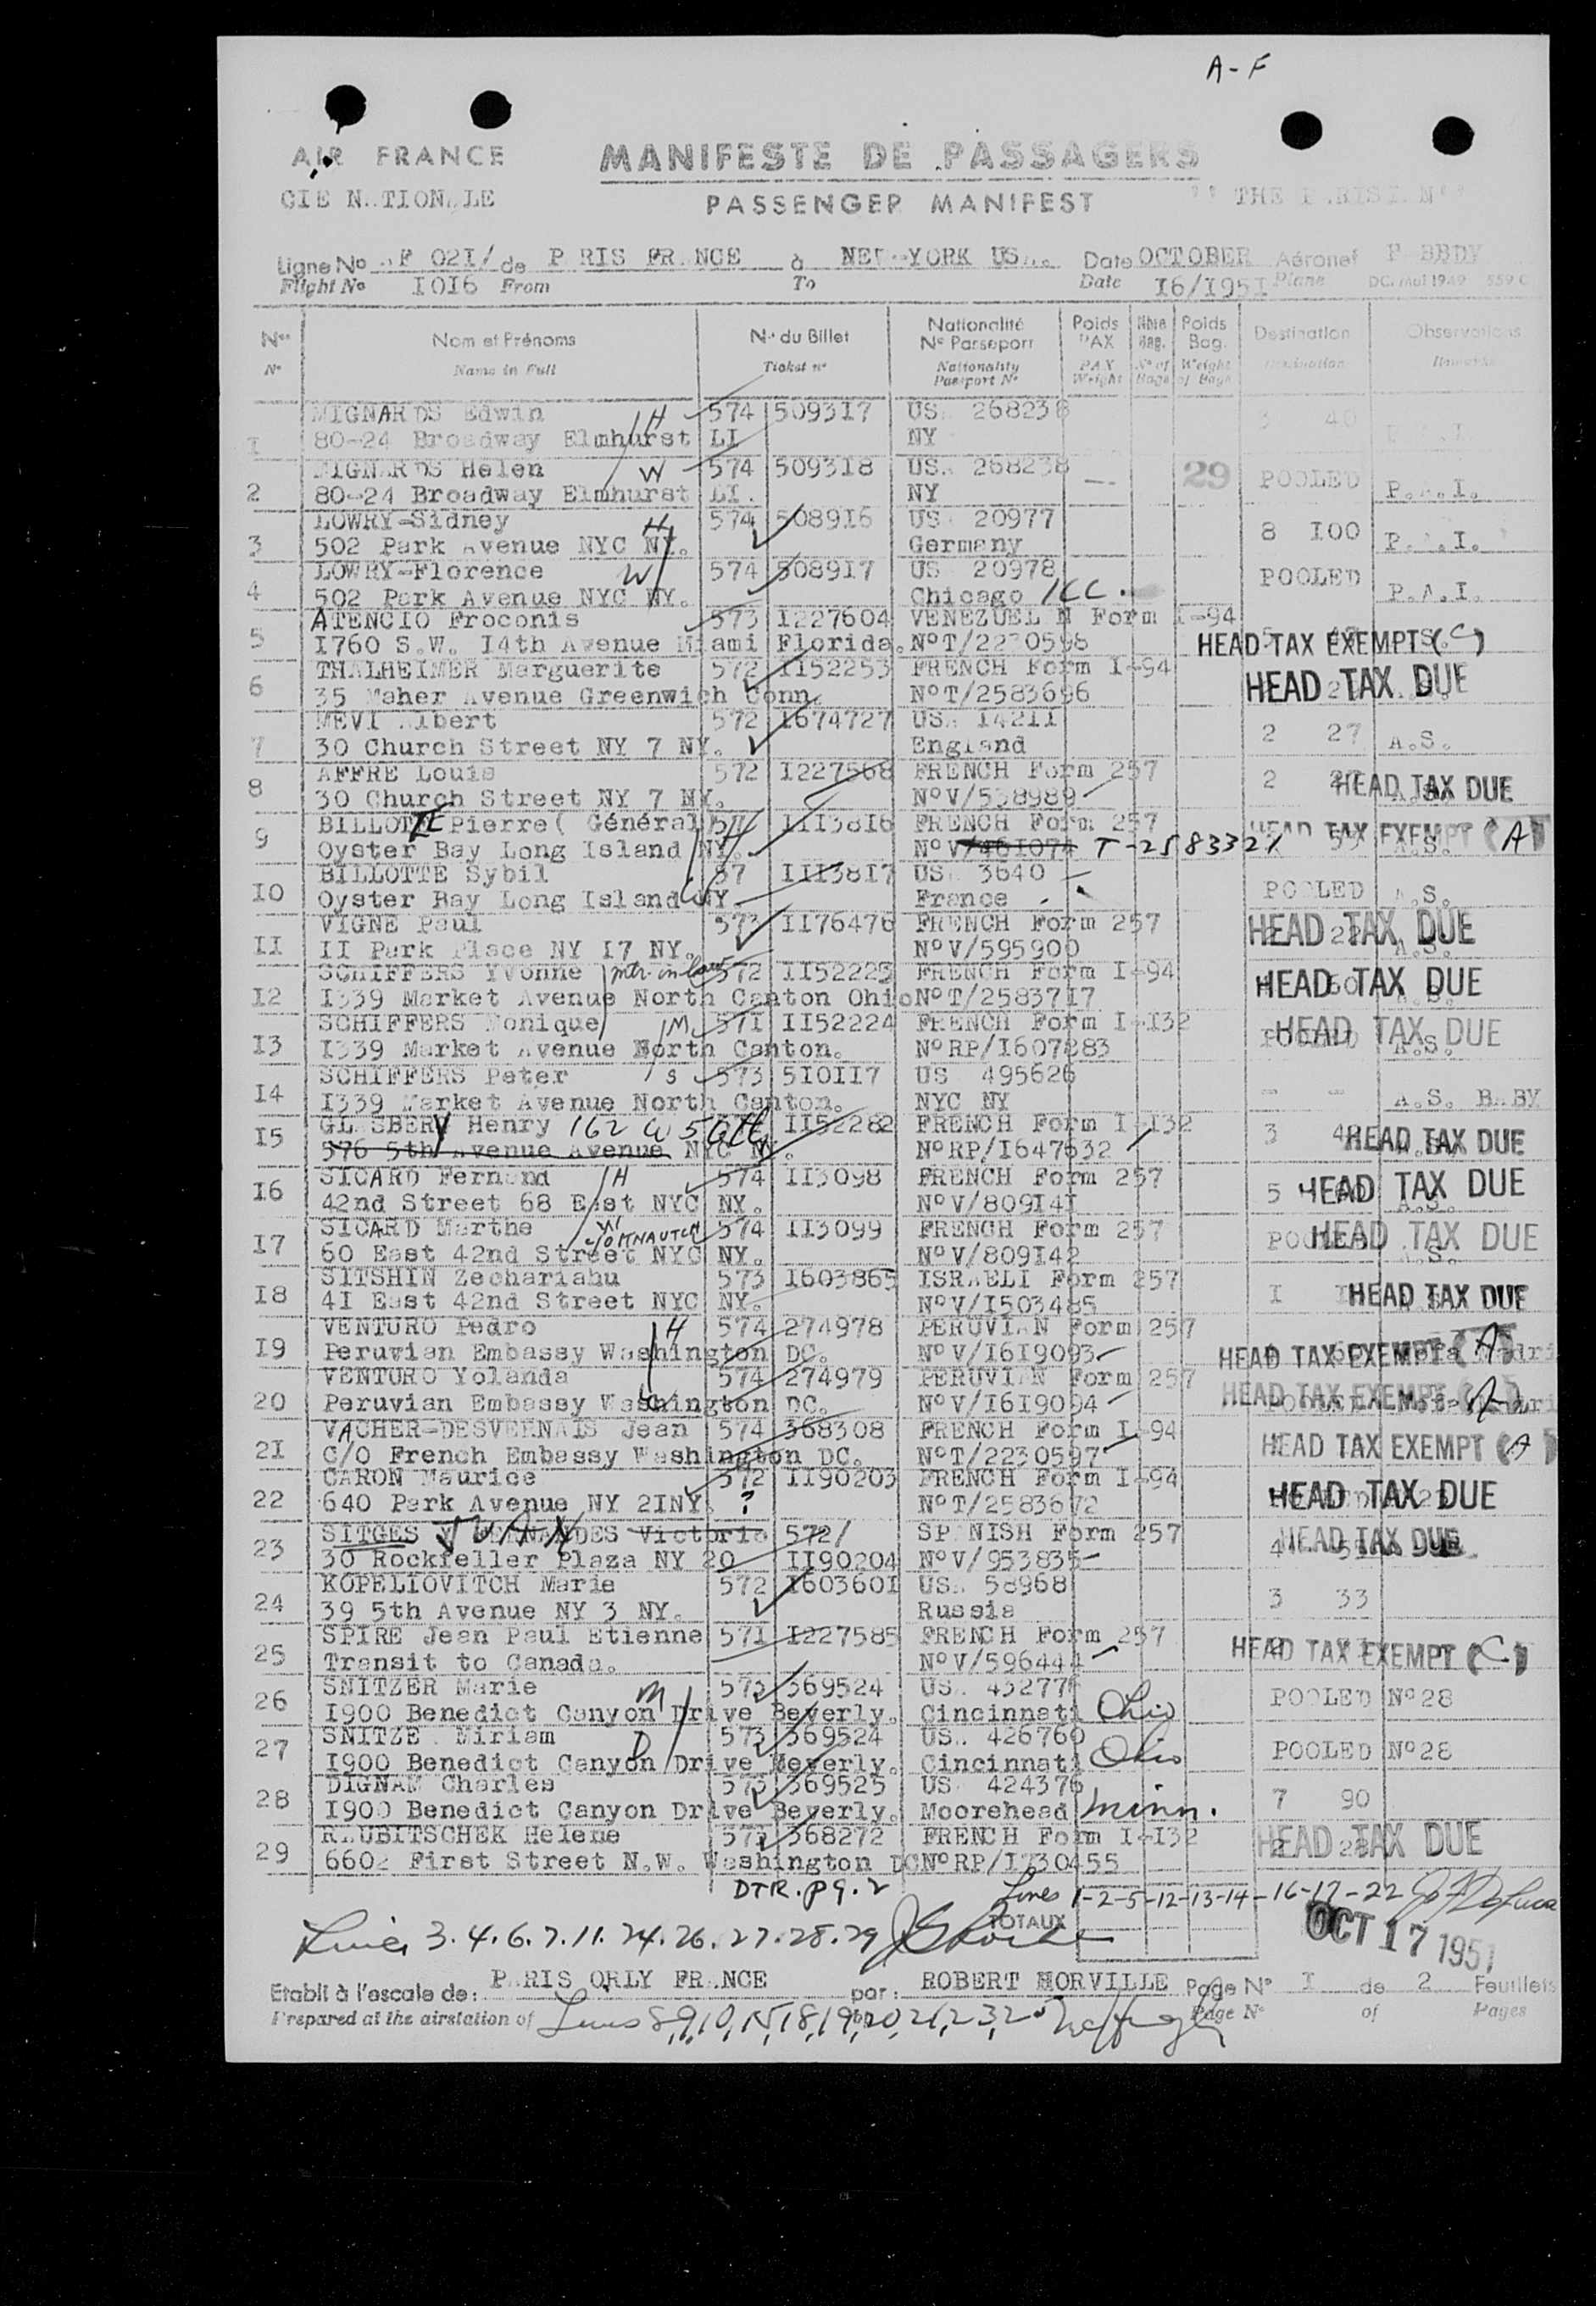 A-F
AIR FRANCE
MANIFESTE DE PASSAGERS
CIE N..TION.LE
PASSENGER MANIFEST
"THE P.RISI.N"
Ligne No .F 021/ de P.RIS FR.NCE à NEW-YORK US.. Date OCTOBER Aéronef F-BBDY
Flight No 1016 From To Date 16/1951 Plane DC. mai 1949 559 C
Nos Nom et Prénoms No du Billet Nationalité No Passeport Poids PAX Nbre Bag. Poids Bag. Destination Observations
No Name in Full Ticket no Nationality Passport No PAX Weight No of Bags Weight of Bags Destination Remarks
MIGNARDS Edwin H 574 509317 US. 268238 3 40
1 80-24 Broadway Elmhurst LI NY
MIGNARDS Helen W 574 509318 US. 268238 29 POOLED
2 80-24 Broadway Elmhurst LI. NY P.A.I.
LOWRY-Sidney H 574 508916 US 20977 8 100
3 502 Park Avenue NYC NY. Germany P.A.I.
LOWRY-Florence W 574 508917 US 20978 POOLED
4 502 Park Avenue NYC NY. Chicago P.A.I.
ATENCIO Froconis 573 1227604 VENEZUEL N Form I-94
5 1760 S.W. 14th Avenue Miami Florida. No T/2230598 HEAD TAX EXEMPT (C)
THALHEIMER Marguerite 572 1152253 FRENCH Form I-94
6 35 Maher Avenue Greenwich Conn. No T/2583696 HEAD TAX DUE
MEVI Albert 572 1674727 US. 14211
7 30 Church Street NY 7 NY. England 2 27 A.S.
AFFRE Louis 572 1227568 FRENCH Form 257
8 30 Church Street NY 7 NY. No V/538989 2 HEAD TAX DUE
BILLOTTE Pierre ( Général) H 1113816 FRENCH Form 257
9 Oyster Bay Long Island NY. No V/461074 T-2583327 HEAD TAX EXEMPT (A)
BILLOTTE Sybil W 1113817 US. 3640
10 Oyster Bay Long Island NY France POOLED A.S.
VIGNE Paul 573 1176476 FRENCH Form 257
11 11 Park Place NY 17 NY. No V/595900 HEAD TAX DUE A.S.
SCHIFFERS Yvonne mtr-in-law 572 1152225 FRENCH Form I-94
12 1339 Market Avenue North Canton Ohio No T/2583717 HEAD TAX DUE
SCHIFFERS Monique M 571 1152224 FRENCH Form I-132
13 1339 Market Avenue North Canton. No RP/1607283 HEAD TAX DUE A.S.
SCHIFFERS Peter S 573 510117 US 495626
14 1339 Market Avenue North Canton. NYC NY - - A.S. BABY
GL.SBERY Henry 162 W 56th 1152282 FRENCH Form I-132
15 576 5th Avenue Avenue NYC NY. No RP/1647632 3 HEAD TAX DUE
SICARD Fernand H 574 113098 FRENCH Form 257
16 42nd Street 68 East NYC NY. No V/809141 5 HEAD TAX DUE A.S.
SICARD Marthe W c/o KNAUTCH 574 113099 FRENCH Form 257
17 60 East 42nd Street NYC NY. No V/809142 HEAD TAX DUE
SITSHIN Zechariahu 573 1603865 ISRAELI Form 257
18 41 East 42nd Street NYC NY. No V/1503485 1 HEAD TAX DUE
VENTURO Pedro H 574 274978 PERUVIAN Form 257
19 Peruvian Embassy Washington DC. No V/1619093 HEAD TAX EXEMPT (A)
VENTURO Yolanda 574 274979 PERUVIAN Form 257
20 Peruvian Embassy Washington DC. No V/1619094 HEAD TAX EXEMPT (A)
VACHER-DESVERNAIS Jean 574 368308 FRENCH Form I-94
21 C/O French Embassy Washington DC. No T/2230597 HEAD TAX EXEMPT (A)
CARON Maurice 572 1190203 FRENCH Form I-94
22 640 Park Avenue NY 21NY. ? No T/2583672 HEAD TAX DUE
SITGES JUAN Victoria 572/ SP.NISH Form 257
23 30 Rockfeller Plaza NY 20 1190204 No V/953835 4 HEAD TAX DUE
KOPELIOVITCH Marie 572 1603601 US. 58968
24 39 5th Avenue NY 3 NY. Russia 3 33
SPIRE Jean Paul Etienne 571 1227585 FRENCH Form 257
25 Transit to Canada. No V/596444 HEAD TAX EXEMPT (C)
SNITZER Marie M 573 369524 US. 432776
26 1900 Benedict Canyon Drive Beverly. Cincinnati Ohio POOLED No 28
SNITZE. Miriam D 573 369524 US. 426760
27 1900 Benedict Canyon Drive Beverly. Cincinnati Ohio POOLED No 28
DIGNAM Charles 573 369525 US 424376
28 1900 Benedict Canyon Drive Beverly. Moorehead Minn. 7 90
RAUBITSCHEK Helene 573 368272 FRENCH Form I-132
29 6602 First Street N.W. Washington DC No RP/1730455 HEAD TAX DUE
DTR. pg. 2
Lines 1-2-5-12-13-14-16-17-22
TOTAUX
Lines 3.4.6.7.11.24.26.27.28.29
OCT 17 1951
Etabli à l'escale de: P.RIS ORLY FR.NCE par: ROBERT MORVILLE Page No 1 de 2 Feuillets
Prepared at the airstation of Page No of Pages
Lines 8,9,10,15,18,19,20,21,23,25